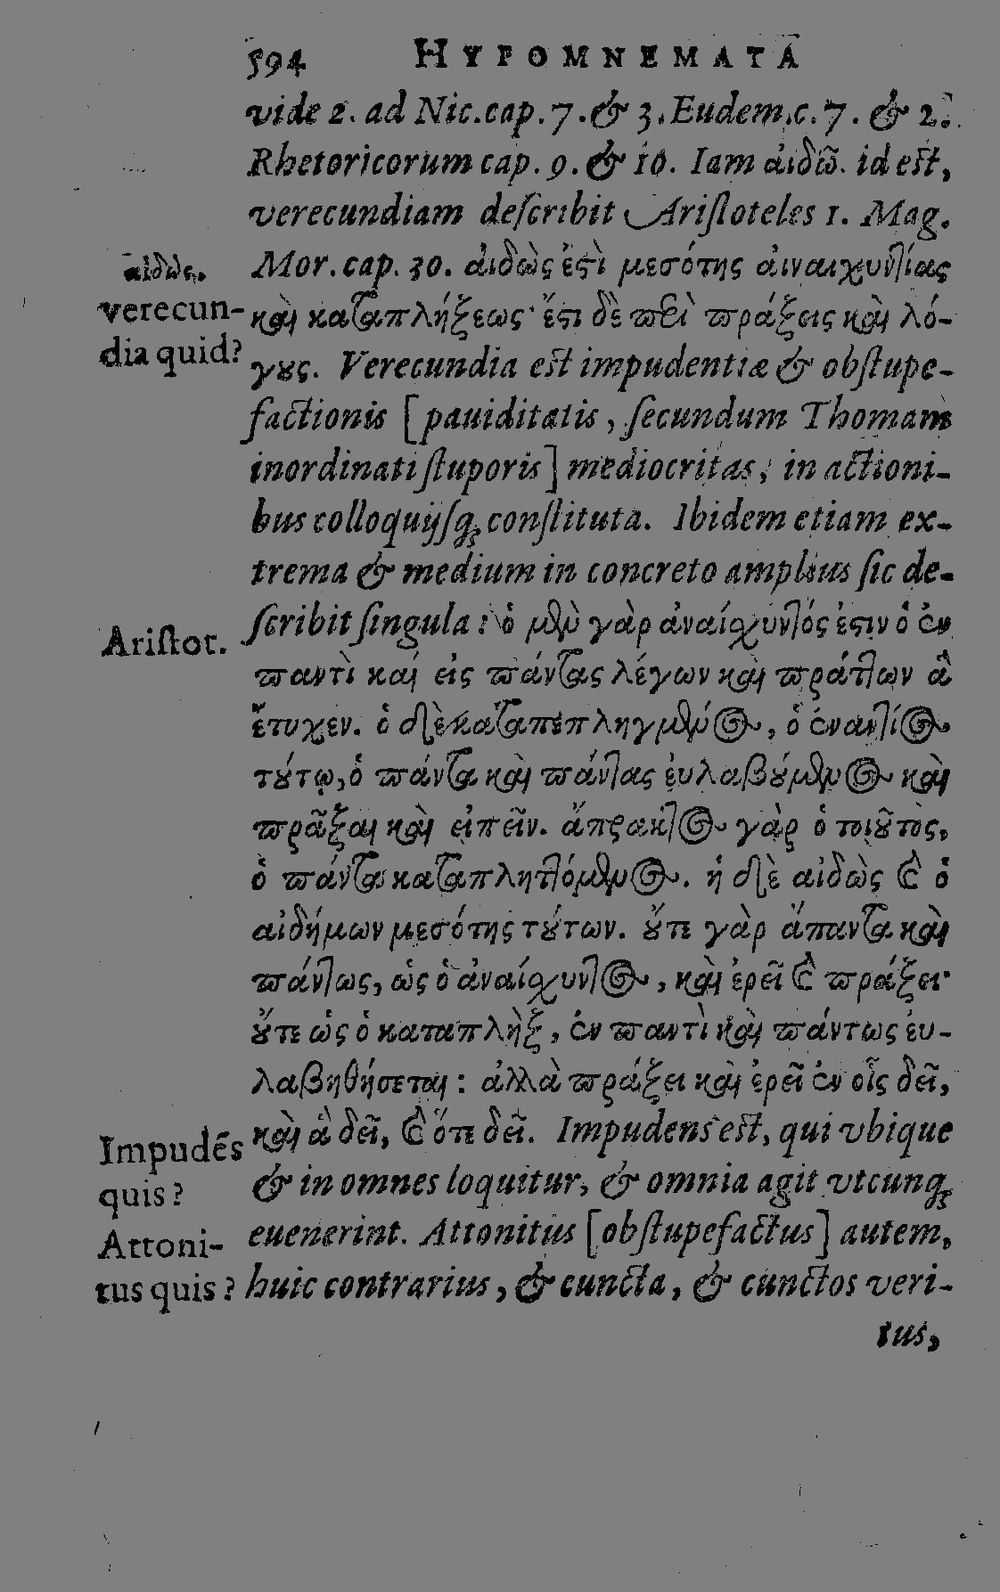 594 HYPOMNEMATA
vide 2. ad Nic. cap. 7. & 3. Eudem. c. 7. & 2.
Rhetoricorum cap. 9. & 10. Iam αἰδῶ. id est,
verecundiam describit Aristoteles 1. Mag.
αἰδὼς.
Mor. cap. 30. αἰδὼς ἐστὶ μεσότης ἀναισχυντίας
verecun-
καὶ καταπλήξεως· ἔστι δὲ περὶ πράξεις καὶ λό-
dia quid?
γους. Verecundia est impudentiæ & obstupe-
factionis [pauiditatis, secundum Thomam
inordinati stuporis] mediocritas, in actioni-
bus colloquijsq; constituta. Ibidem etiam ex-
trema & medium in concreto amplius sic de-
Aristot.
scribit singula: ὁ μὲν γὰρ ἀναίσχυντός ἐστιν ὁ ἐν
παντὶ καί εἰς πάντας λέγων καὶ πράττων ἃ
ἔτυχεν. ὁ δὲ καταπεπληγμένος, ὁ ἐναντίος
τούτῳ, ὁ πάντα καὶ πάντας ἐυλαβούμενος καὶ
πρᾶξαι καὶ εἰπεῖν. ἄπρακτος γὰρ ὁ τοιοῦτος,
ὁ πάντα καταπληττόμενος. ἡ δὲ αἰδὼς καὶ ὁ
αἰδήμων μεσότης τούτων. οὔτε γὰρ ἅπαντα καὶ
πάντως, ὡς ὁ ἀναίσχυντος, καὶ ἐρεῖ καὶ πράξει·
οὔτε ὡς ὁ καταπλὴξ, ἐν παντὶ καὶ πάντως ἐυ-
λαβηθήσεται: ἀλλὰ πράξει καὶ ἐρεῖ ἐν οἷς δεῖ,
Impudēs
καὶ ἃ δεῖ, καὶ ὅτε δεῖ. Impudens est, qui vbique
quis?
& in omnes loquitur, & omnia agit vtcunq;
Attoni-
euenerint. Attonitus [obstupefactus] autem,
tus quis?
huic contrarius, & cuncta, & cunctos veri-
tus,